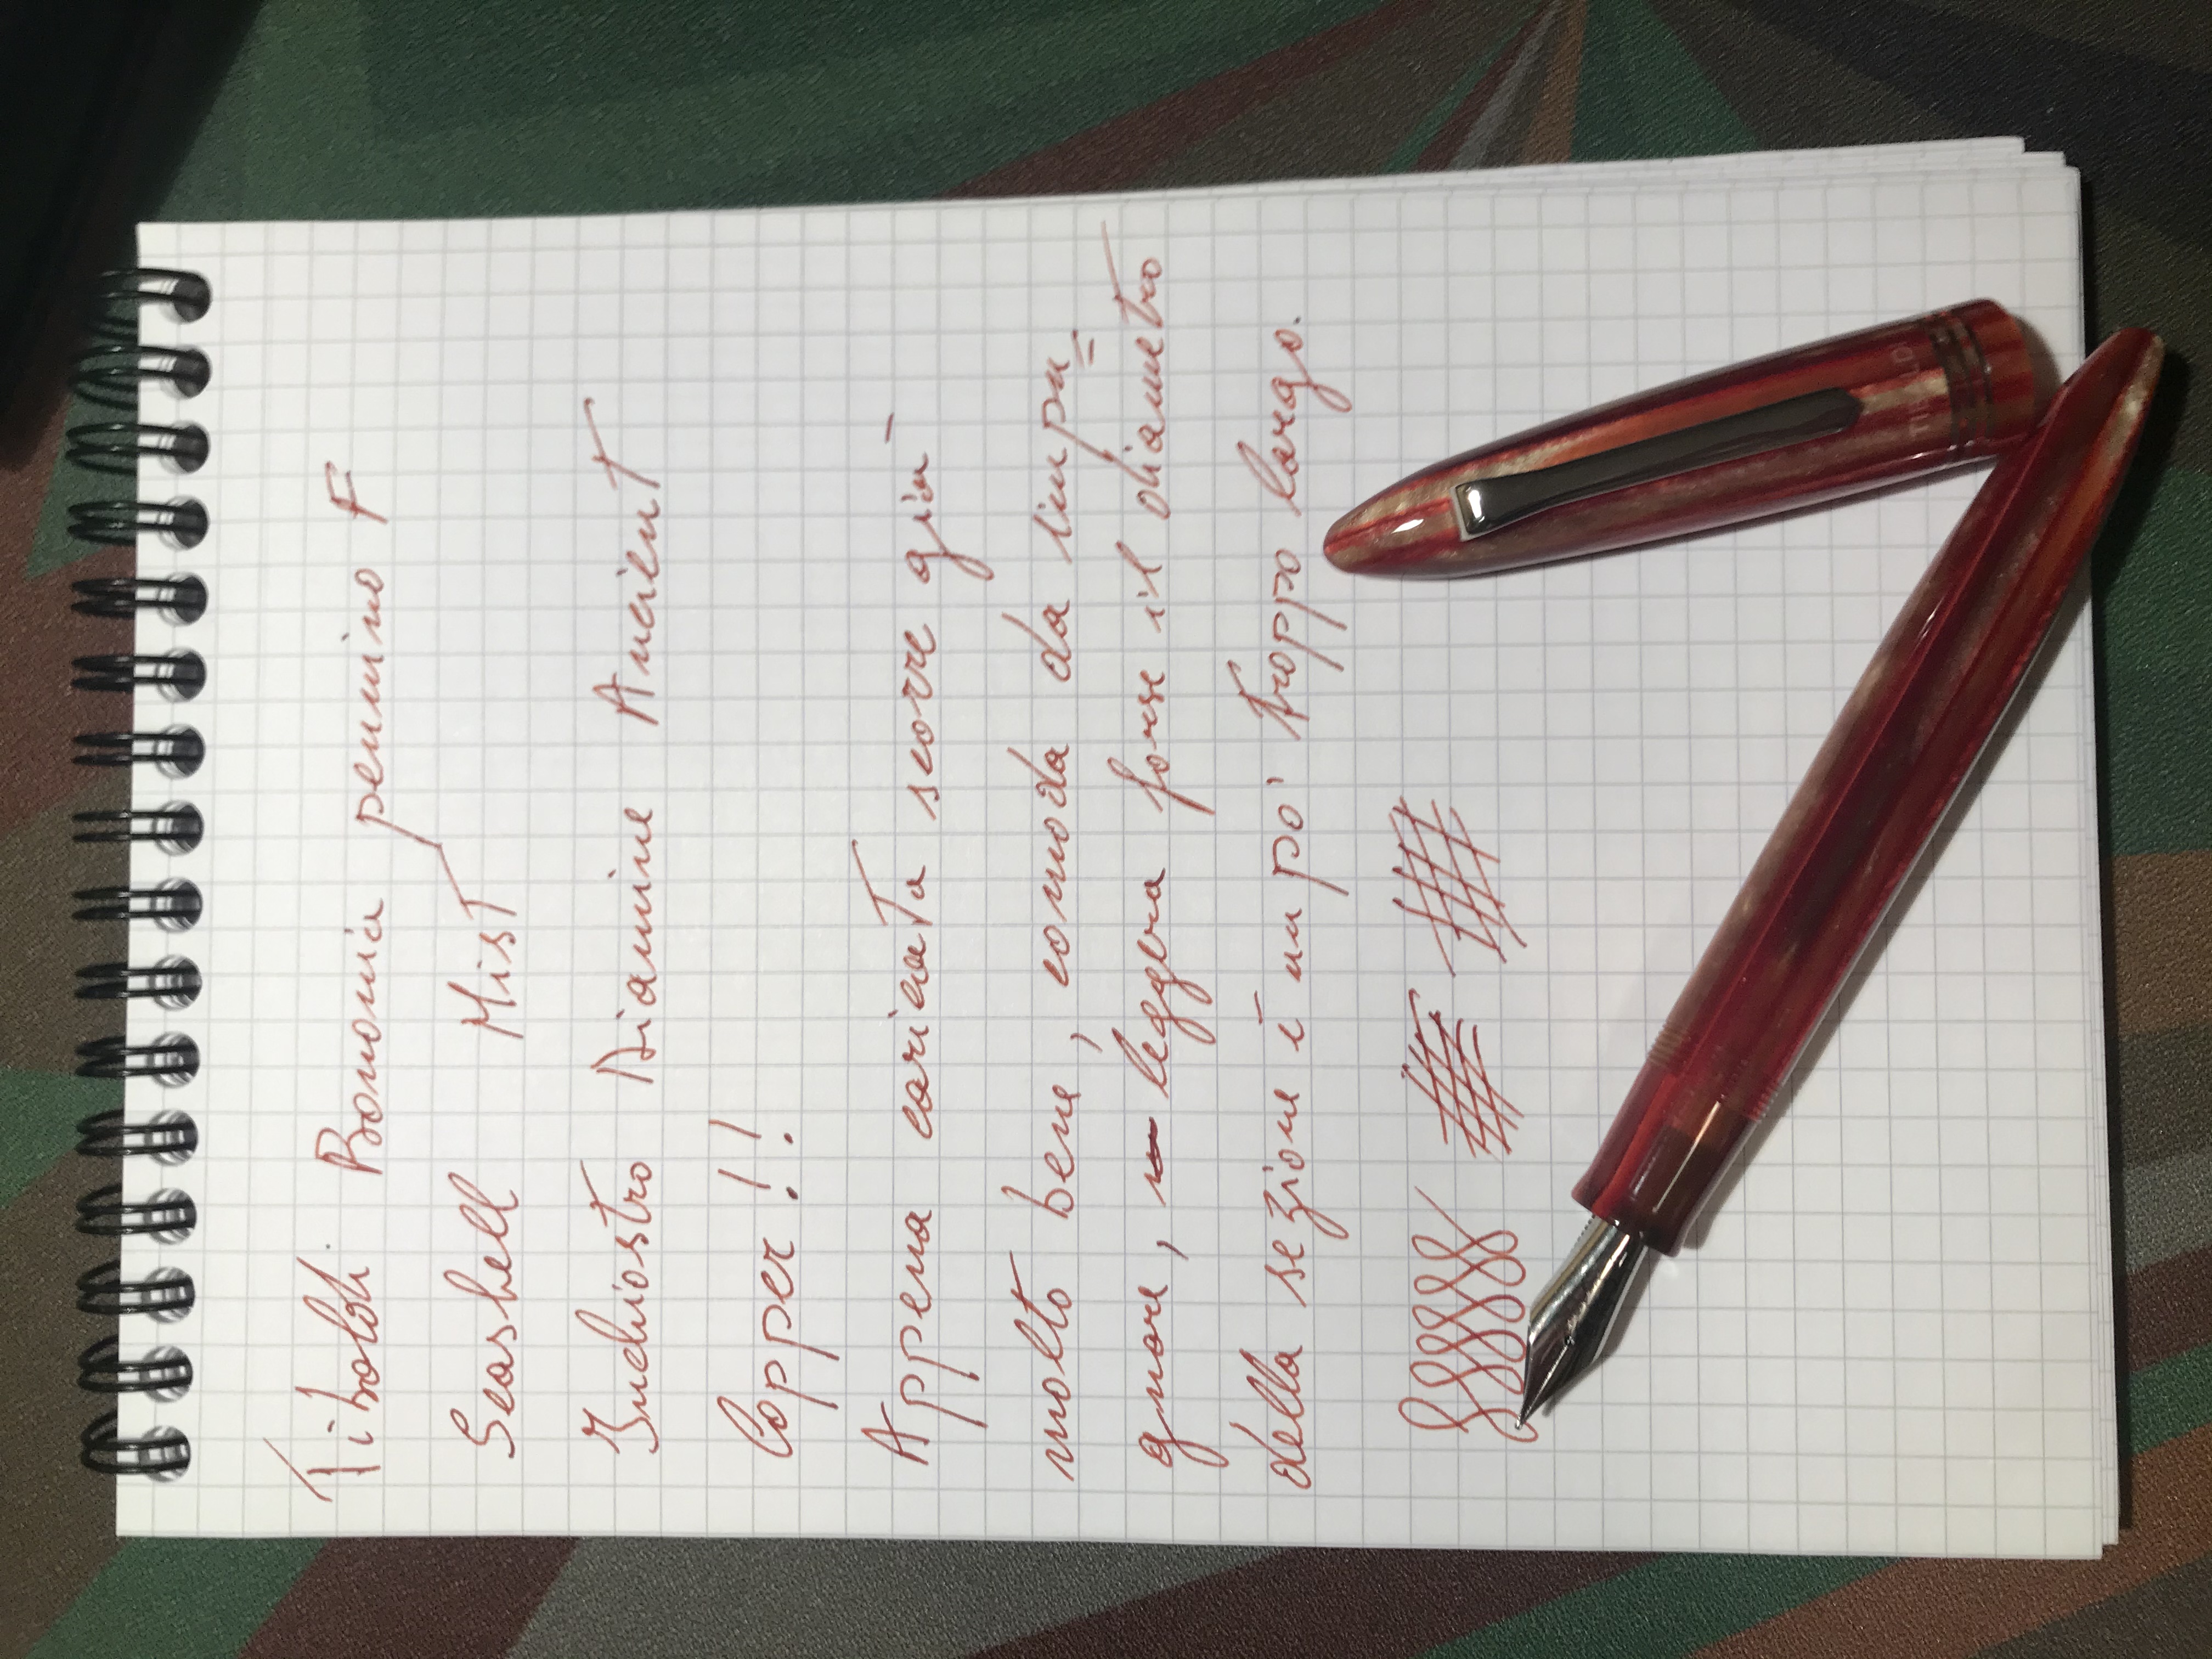 Tibaldi Bononia pennino F
Seashell Mist
Inchiostro Diamine Ancient
Copper!!
Appena caricata scorre già
molto bene, comoda da impu=
gnare, leggera forse il diametro
della sezione è un po' troppo largo.
TIBALDI